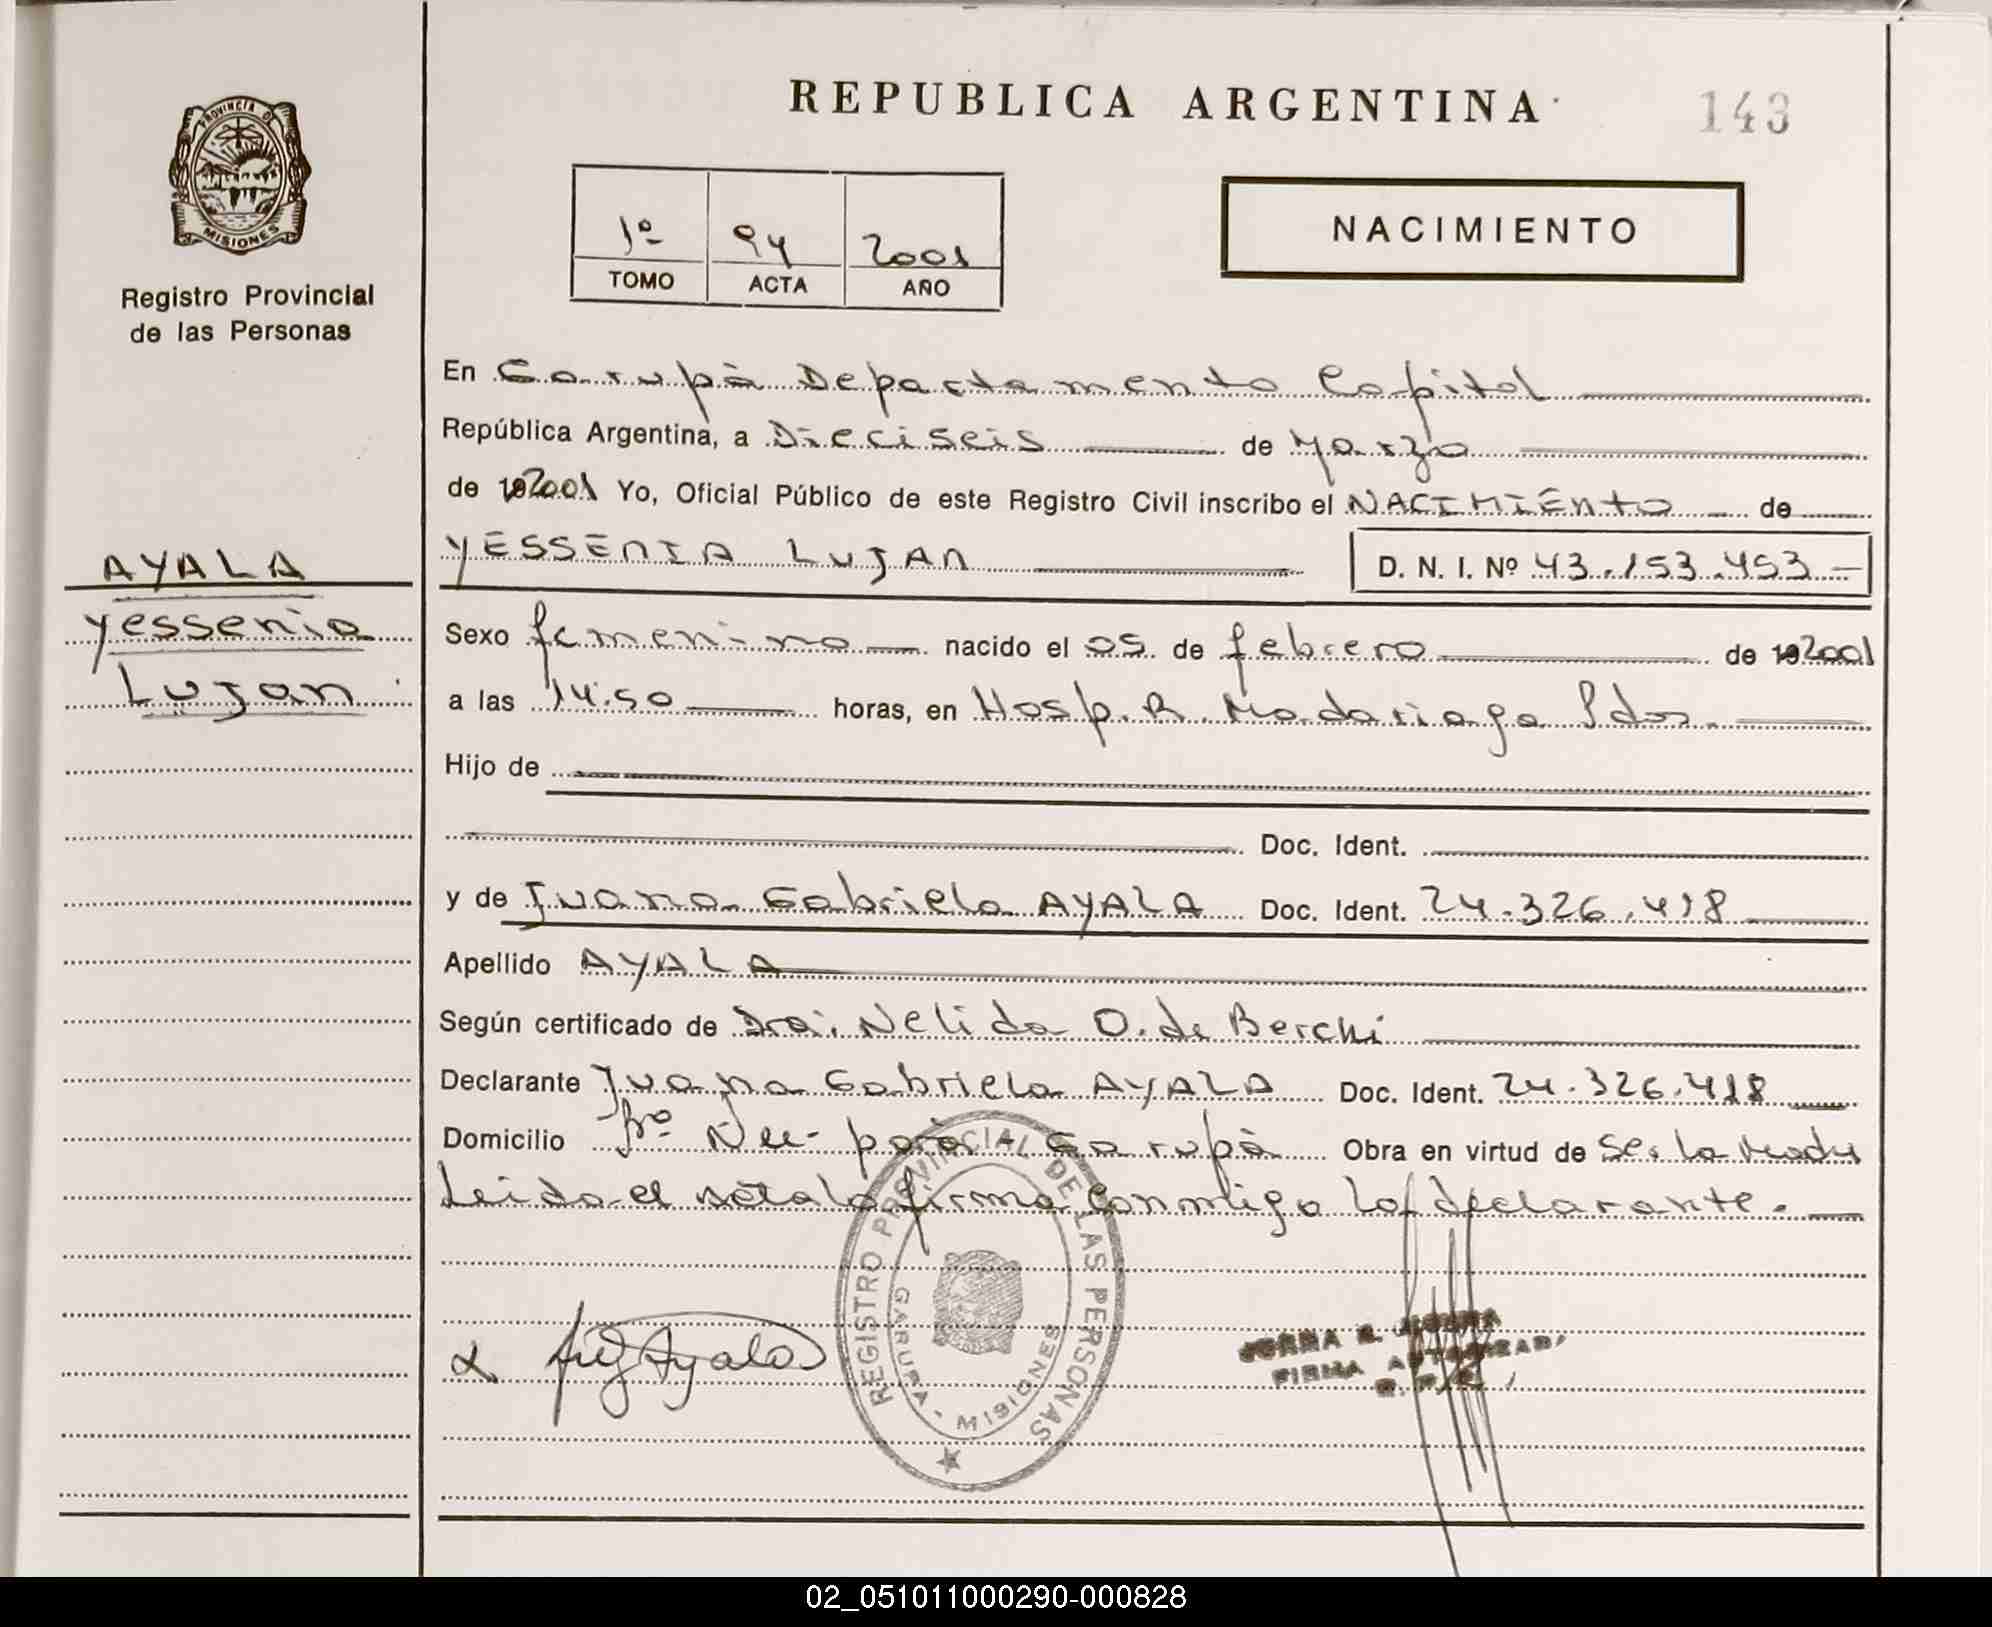 REPUBLICA ARGENTINA
143
PROVINCIA DE
MISIONES
Registro Provincial
de las Personas
1º 94 2001
TOMO ACTA AÑO
NACIMIENTO
En Garupà Departamento Capital
República Argentina, a Dieciseis de Marzo
de 192001 Yo, Oficial Público de este Registro Civil inscribo el NACIMIENTO de
AYALA
Yessenia
Lujan
YESSENIA LUJAN D. N. I. Nº 43.153.453
Sexo femenino nacido el 05 de febrero de 192001
a las 14.50 horas, en Hosp. R. Madariaga Pdas.
Hijo de
Doc. Ident.
y de Juana Gabriela AYALA Doc. Ident. 24.326.418
Apellido AYALA
Según certificado de Dra. Nelida O. de Berchi
Declarante Juana Gabriela AYALA Doc. Ident. 24.326.418
Domicilio Bº Garupà Obra en virtud de Ser la Madre
Leida el acta la firma conmigo la declarante.
REGISTRO PROVINCIAL DE LAS PERSONAS
GARUPA - MISIONES
Ayala
FIRMA
02_051011000290-000828